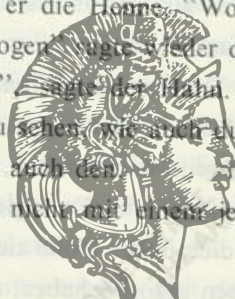 er die Henne. "Wo
ogen" sagte wieder d
", sagte der Hahn.
u sehen, wie auch
auch den
nicht mit einem je